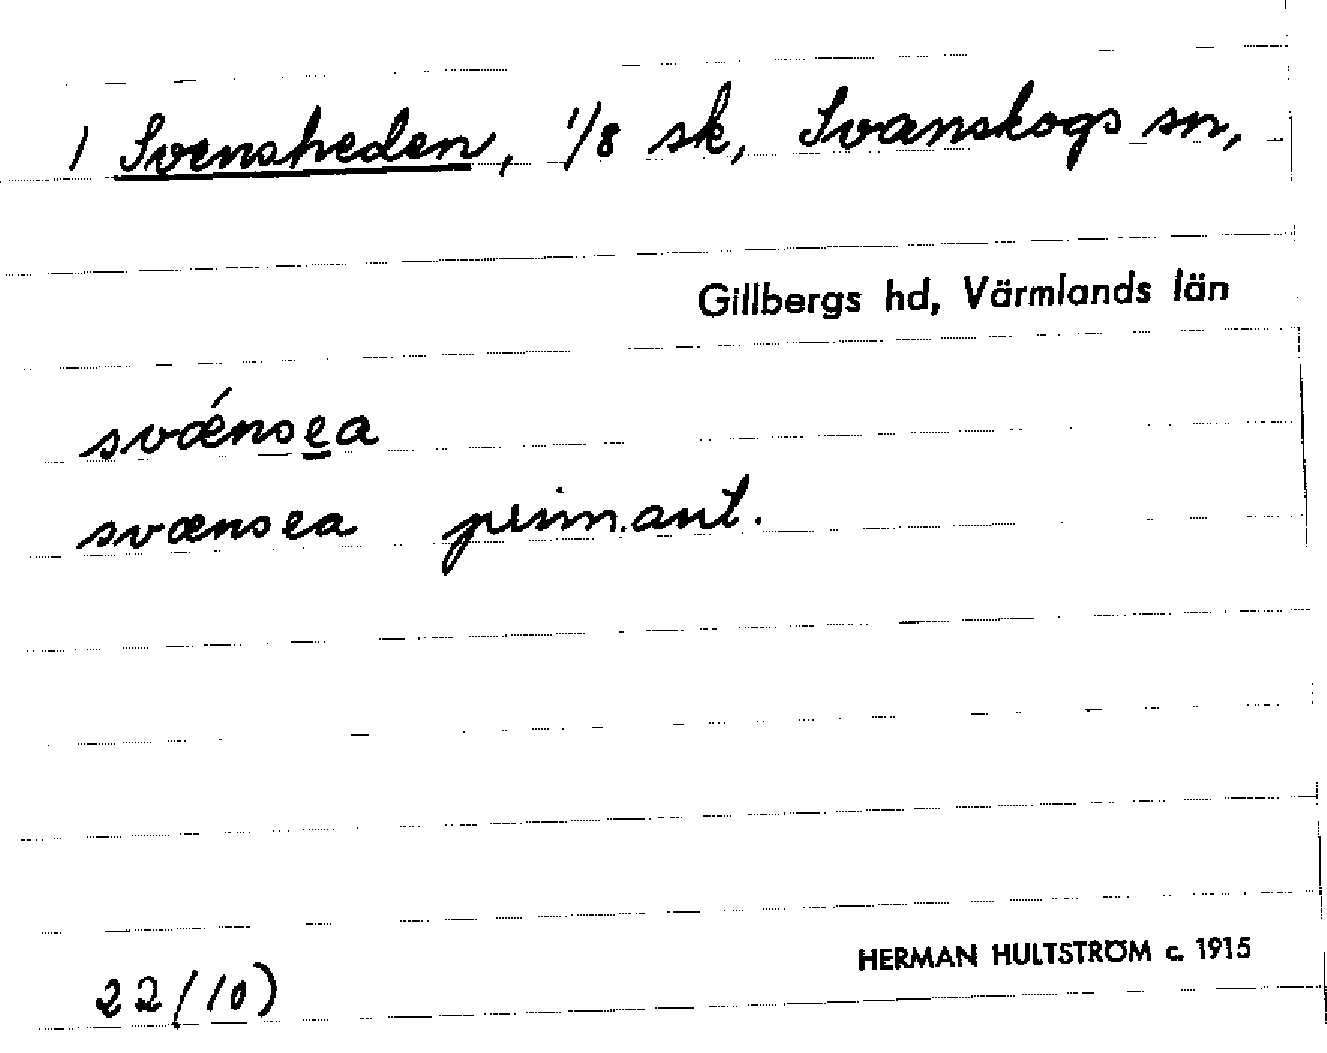 1 Svensheden, 1/8 sk, Svanskogs sn,
Gillbergs hd, Värmlands län
svǽnsea
svænsea prim.ant.
HERMAN HULTSTRÖM c. 1915
22(10)